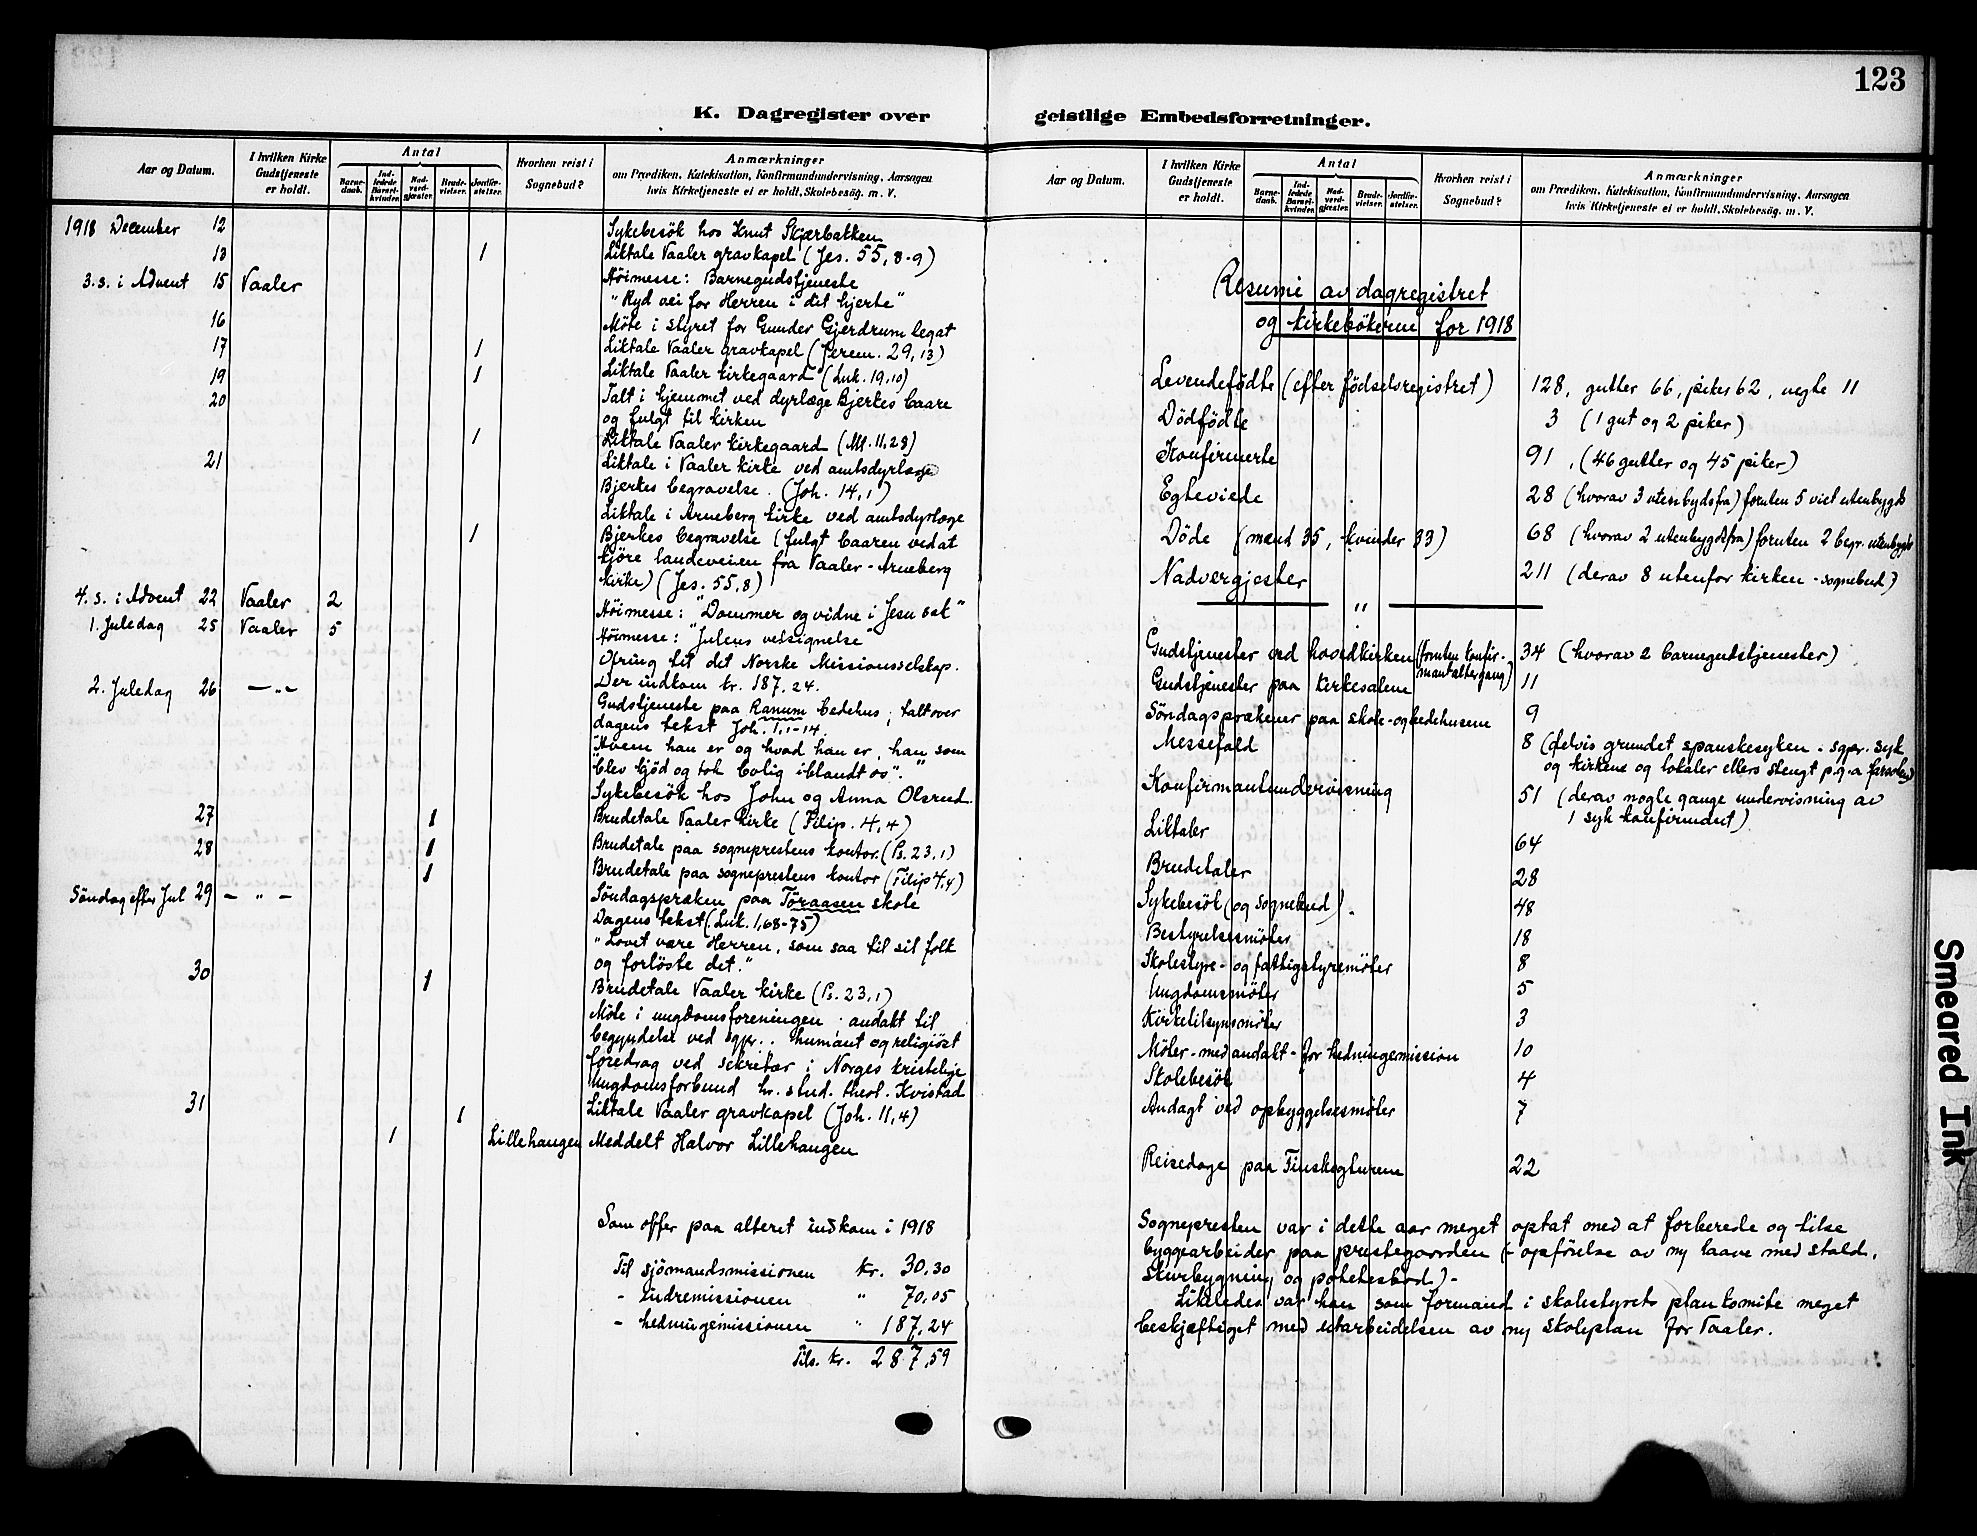 123
K. Dagregister over geistlige Embedsforretninger.
Aar og Datum.
I hvilken Kirke Gudstjeneste er holdt.
Antal
Barnedaab.
Indledede Barselkvinder.
Nadverdgjæster.
Brudevielser.
Jordfæstelser.
Hvorhen reist i Sognebud?
Anmærkninger
om Prædiken, Katekisation, Konfirmandundervisning, Aarsagen
hvis Kirketjeneste ei er holdt, Skolebesøg. m. V.
1918 December 12 Sykebesök hos Knut Skjærbakken
13 1 Liktale Vaaler gravkapel (Jes. 55, 8-9)
3. s. i Advent 15 Vaaler Höimesse: Barnegudstjeneste
"Ryd vei for Herren i dit hjerte"
16 Möte i styret for Gunder Gjerdrum legat
17 1 Liktale Vaaler gravkapel (Jerem. 29, 13)
19 1 Liktale Vaaler kirkegaard (Luk. 19,10)
20 Talt i hjemmet ved dyrlæge Bjerkes baare
og fulgt til kirken
1 Liktale Vaaler kirkegaard (Mt. 11,28)
21 Liktale i Vaaler kirke ved amtsdyrlæge
Bjerkes begravelse. (Joh. 14, 1)
Liktale i Arneberg kirke ved amtsdyrlæge
1 Bjerkes begravelse (fulgt baaren ved at
kjöre landeveien fra Vaaler - Arneberg
kirke) (Jes. 55,8)
4. s. i Advent 22 Vaaler 2 Höimesse: "Dommer og vidne i Jesu sak"
1. Juledag 25 Vaaler 5 Höimesse: "Julens velsignelse"
Ofring til det Norske Missionsselskap.
Der indkom kr. 187.24.
2. Juledag 26 — " — Gudstjeneste paa Ranum bedehus; talt over
dagens tekst Joh. 1,1-14.
"Hvem han er og hvad han er, han som
blev kjöd og tok bolig iblandt os".
Sykebesök hos John og Anna Olsrud.
27 1 Brudetale Vaaler kirke (Filip. 4,4)
28 1 Brudetale paa sogneprestens kontor. (Ps. 23,1)
1 Brudetale paa sogneprestens kontor (Filip 4,4)
Söndag efter Jul 29 — " — Söndagspræken paa Töraasen skole
Dagens tekst (Luk. 1,68-75)
"Lovet være Herren, som saa til sit folk
og forlöste det."
30 1 Brudetale Vaaler kirke (Ps. 23,1)
Möte i ungdomsforeningen; andakt til
begyndelse ved sgpr.. humant og religiöst
foredrag ved sekretær i Norges kristelige
Ungdomsforbund hr. stud. theol. Kvistad
31 1 Liktale Vaaler gravkapel (Joh. 11,4)
1 Lillehaugen Meddelt Halvor Lillehaugen
Som offer paa alteret indkom i 1918
Til sjömandsmissionen kr. 30.30
- Indremissionen " 70.05
- hedningemissionen " 187.24
Tils. kr. 287.59
Aar og Datum.
I hvilken Kirke Gudstjeneste er holdt.
Antal
Barnedaab.
Indledede Barselkvinder.
Nadverdgjæster.
Brudevielser.
Jordfæstelser.
Hvorhen reist i Sognebud?
Anmærkninger
om Prædiken, Katekisation, Konfirmandundervisning, Aarsagen
hvis Kirketjeneste ei er holdt, Skolebesøg. m. V.
Resumé av dagregistret
og kirkebökerne for 1918
Levendefödte (efter födselsregistret) 128, gutter 66, piker 62, uegte 11
Dödfödte 3 (1 gut og 2 piker)
Konfirmerte 91, (46 gutter og 45 piker)
Egteviede 28 (hvorav 3 utenbygdsfra) foruten 5 viet utenbygds
Döde (mænd 35, kvinder 33) 68 (hvorav 2 utenbygdsfra) foruten 2 begr. utenbygds
Nadvergjester 211 (derav 8 utenfor kirken - sognebud)
— " —
Gudstjenester ved hovedkirken (foruten konfirmantaltergang) 34 (hvorav 2 barnegudstjenester)
Gudstjenester paa kirkesalene 11
Söndagsprækener paa skole- og bedehusene 9
Messefald 8 (delvis grundet spanskesyken - sgpr. syk
og kirkene og lokaler ellers stengt p.g.a farsoten)
Konfirmantundervisning 51 (derav nogle gange undervisning av
1 syk konfirmant)
Liktaler 64
Brudetaler 28
Sykebesök (og sognebud). 48
Bestyrelsesmöter 18
Skolestyre- og fattigstyremöter 8
Ungdomsmöter 5
Kirketilsynsmöter 3
Möter - med andakt - for hedningemission 10
Skolebesök 4
Andagt ved opbyggelsesmöter 7
Reisedage paa Finskogturene 22
Sognepresten var i dette aar meget optat med at forberede og tilse
byggearbeider paa prestegaarden (- opförelse av ny laave med stald,
skurbygning og potetesbod) -
Likeledes var han som formand i skolestyrets plankomite meget
beskjæftiget med utarbeidelsen av ny skoleplan for Vaaler.
Smeared Ink